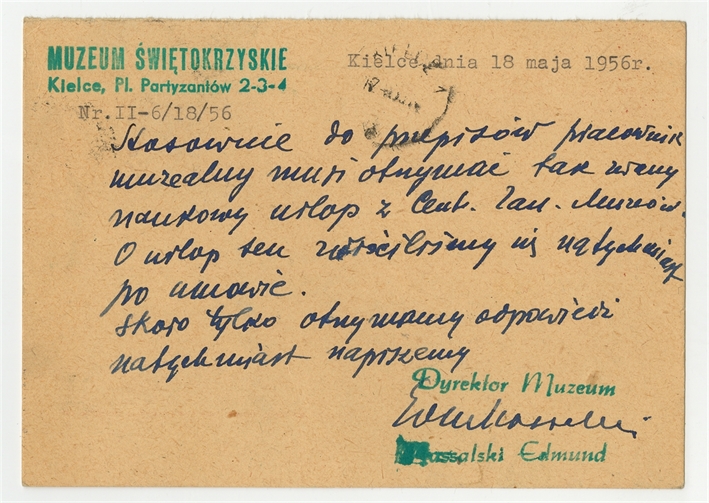 MUZEUM ŚWIĘTOKRZYSKIE
Kielce, Pl. Partyzantów 2-3-4
Kielce dnia 18 maja 1956r.
Nr.II-6/18/56
Stosownie do przepisów pracownik
muzealny musi otrzymać tak zwany
naukowy urlop z Centr. Zarz. Muzeów.
O urlop ten zwróciliśmy się natychmiast
po umowie.
Skoro tylko otrzymamy odpowiedź
natychmiast napiszemy
Dyrektor Muzeum
Massalski Edmund